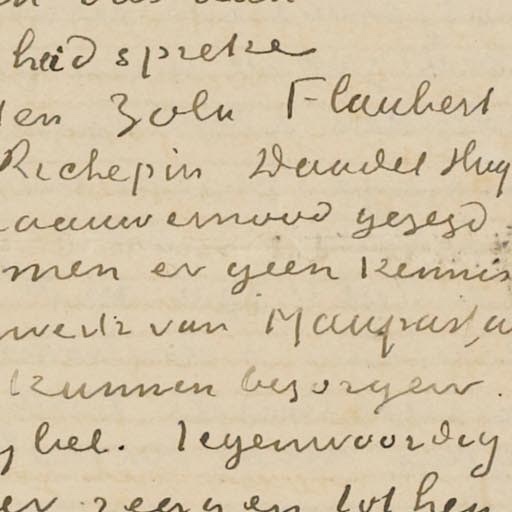 heid spreke
ten Zola Flaubert
Richepin Daudet Huy
naauwernood gezegd
men er geen kennis
werk van Maupassa
kunnen bezorgen.
bel. Tegenwoordig
er zeggen tot hen